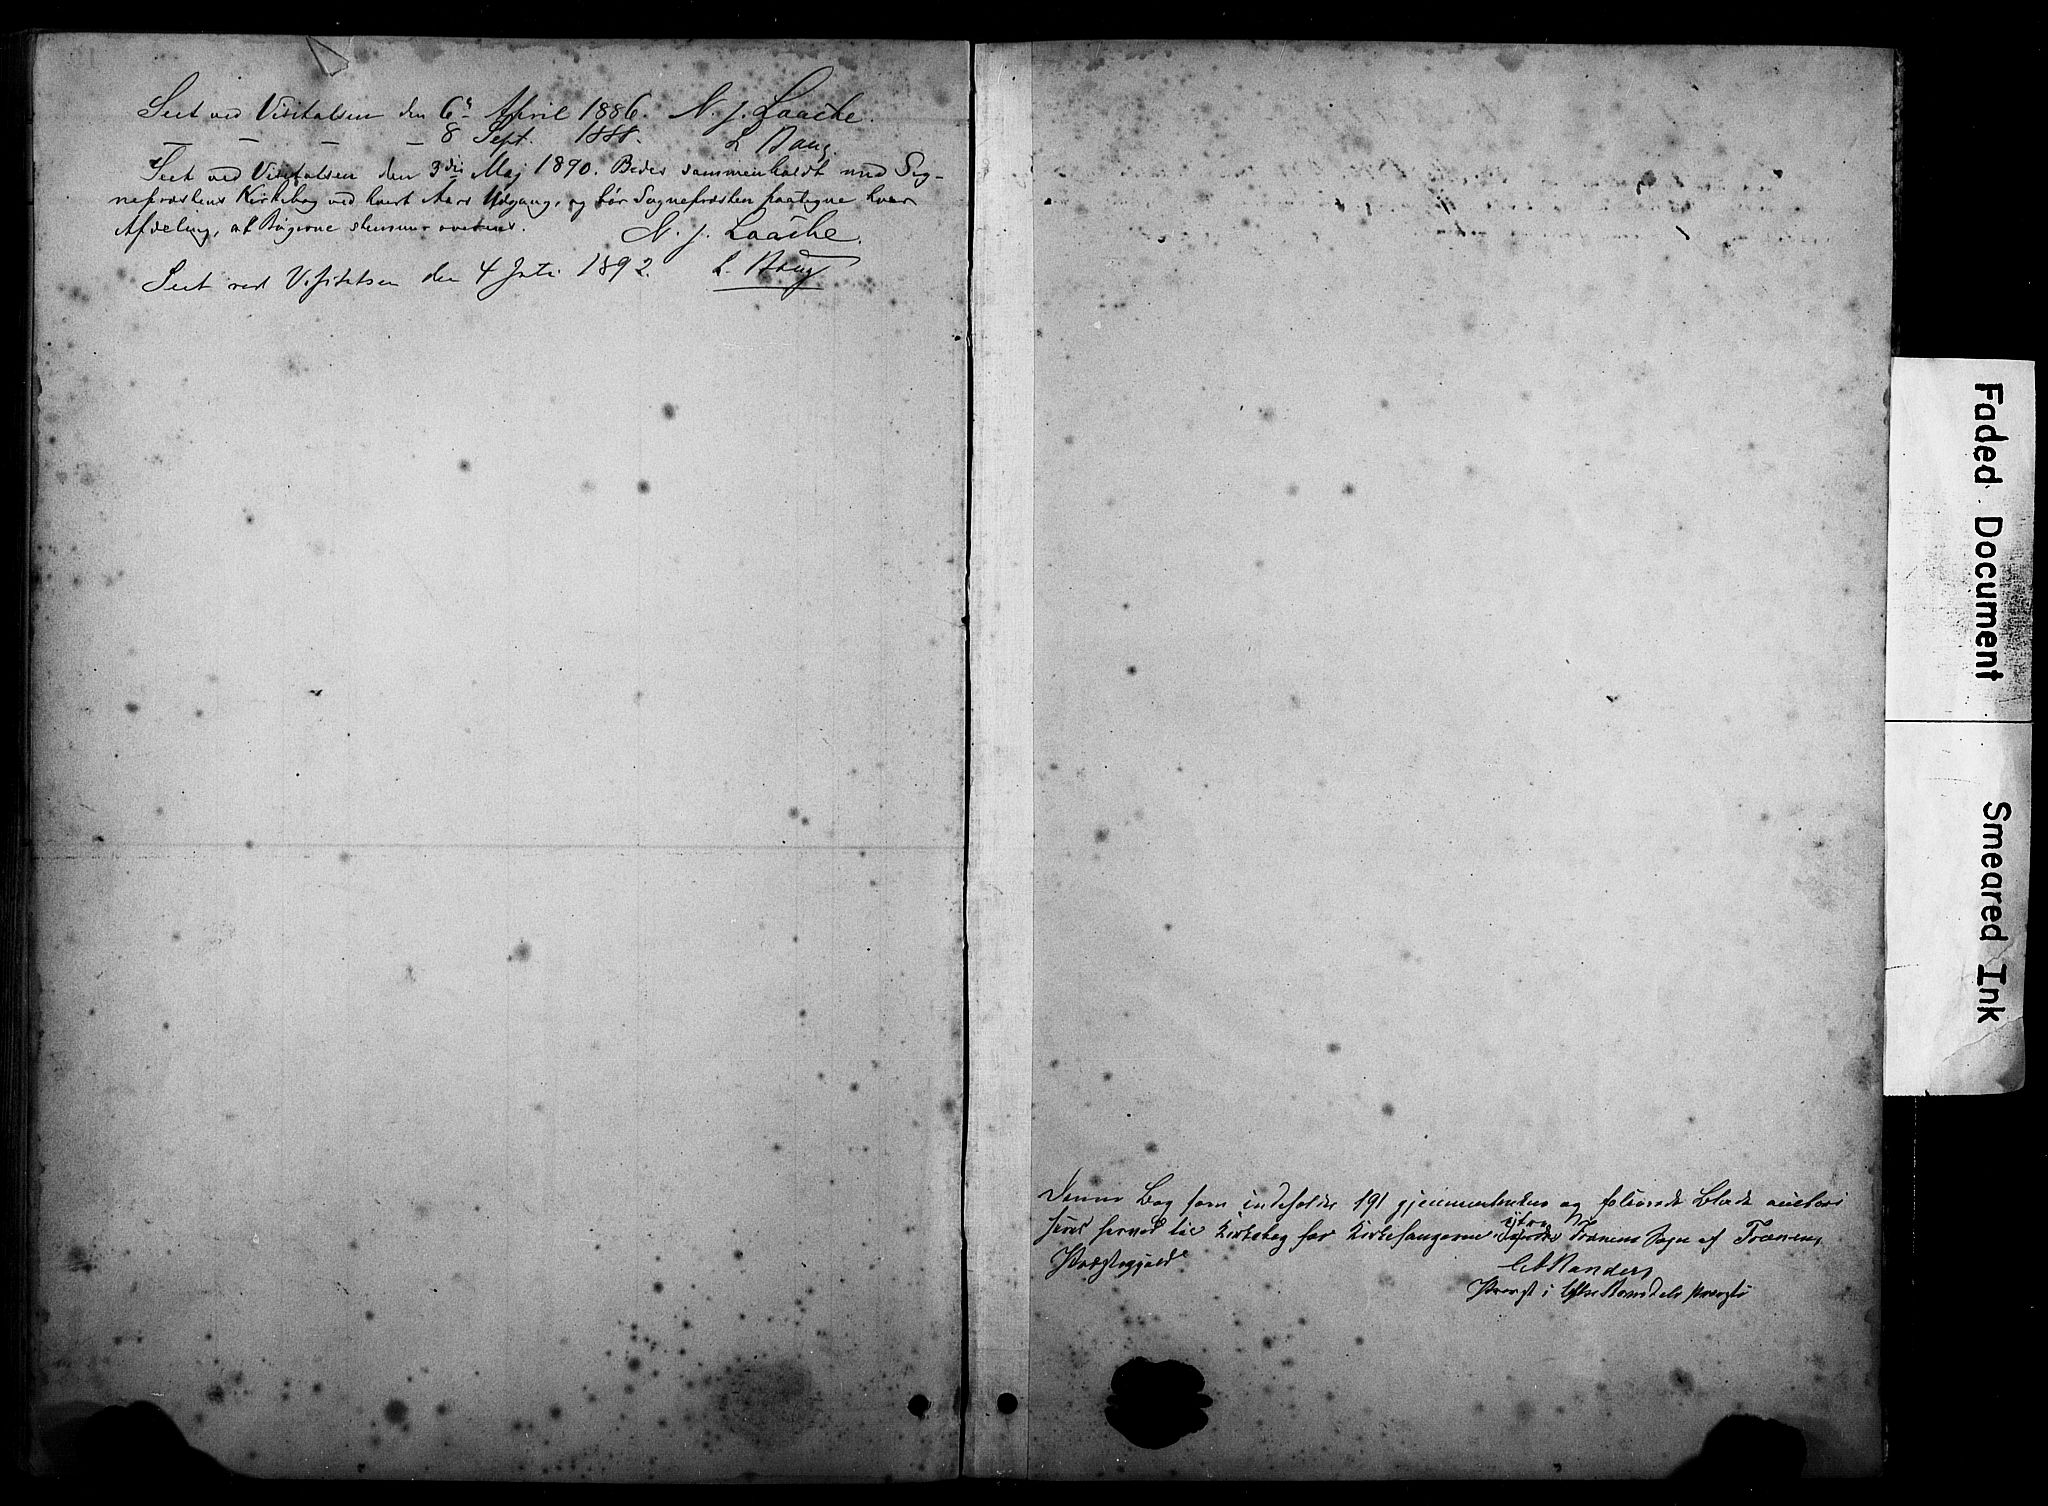 Seet ved Visitatsen den 6te April 1886. N. J. Laache.
— — — — 8 Sept. 1888. L Daug.
Seet ved Visitatsen den 3die Maj 1890. Bedes sammenholdt med Sog-
nepræstens Kirkebog ved hvert Aars Udgang, og bør Sognepræsten paategne hver
Afdeling, at Bøgerne stemme overens. N. J. Laache.
Seet ved Visitatsen den 4 Juli 1892. L. Daug
Denne Bog som indeholder 191 gjennemtrukne og folierede Blade autori
seres herved til Kirkebog for Kirkesangeren i Ytre Tranens Sogn af Tranens
Præstegjeld
Randers
Provst i Ytre Romsdals Provsti
Faded Document
Smeared Ink